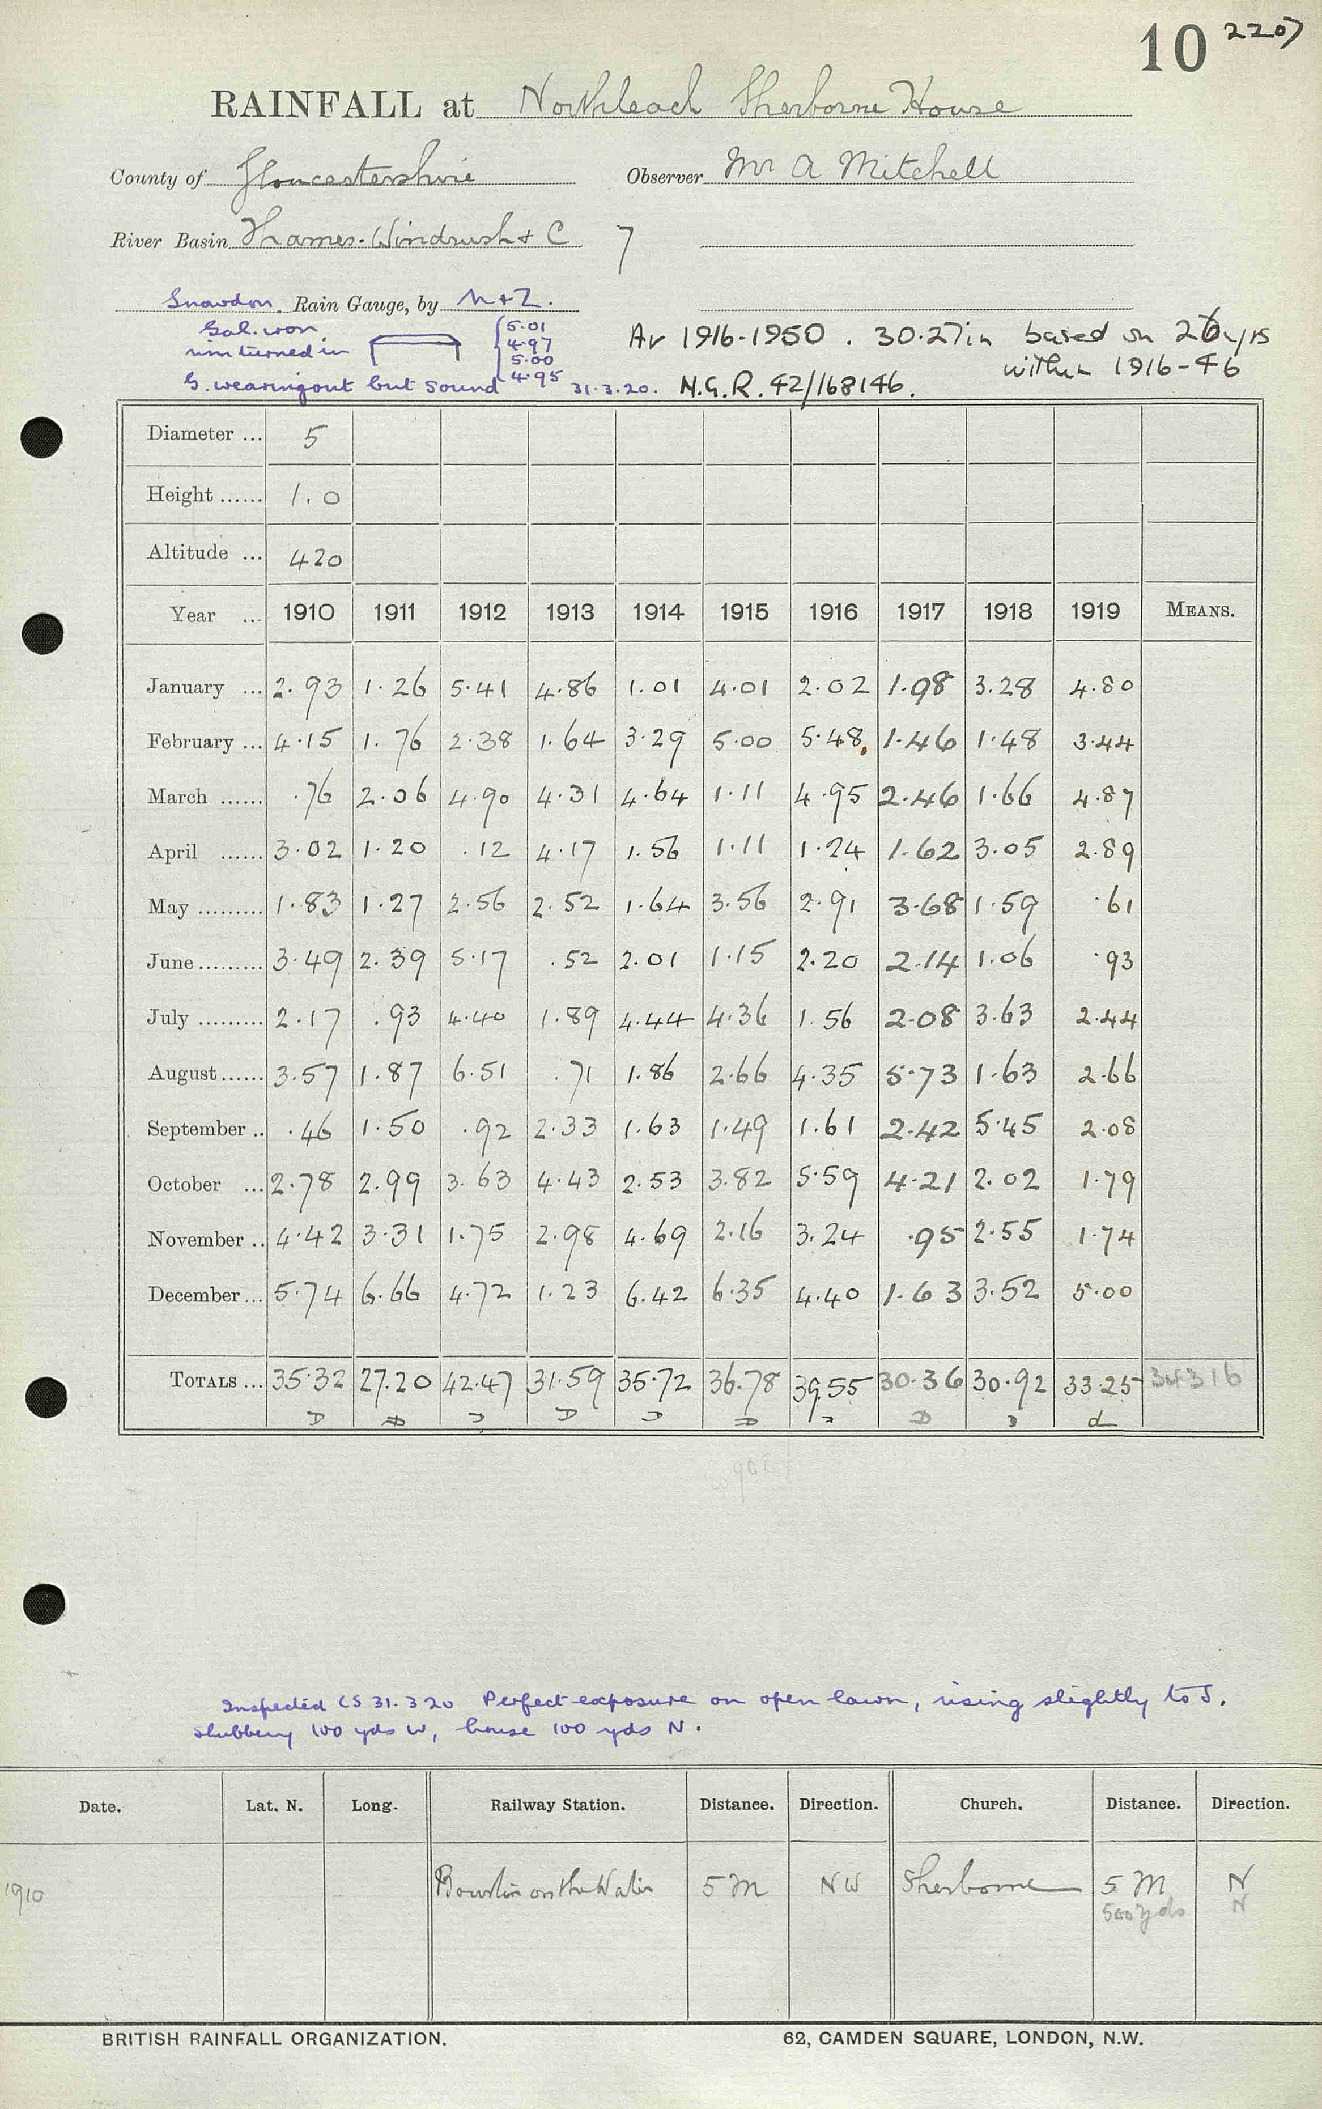 10 2207
RAINFALL at Northleach Sherborne House
County of Gloucestershire Observer Mr A Mitchell
River Basin Thames-Windrush + C 7
Snowdon Rain Gauge, by N+Z.
Gal. iron
rim turned in
5.01
4.97
5.00
4.95
G. wearing out but sound 31.3.20.
Av 1916-1950 . 30.27in based on 26 yrs
within 1916-46
N.G.R. 42/168146.
Diameter ... 5
Height ...... 1.0
Altitude ... 420
Year ... 1910 1911 1912 1913 1914 1915 1916 1917 1918 1919 MEANS.
January ... 2.93 1.26 5.41 4.86 1.01 4.01 2.02 1.98 3.28 4.80
February ... 4.15 1.76 2.38 1.64 3.29 5.00 5.48 1.46 1.48 3.44
March ...... .76 2.06 4.90 4.31 4.64 1.11 4.95 2.46 1.66 4.87
April ...... 3.02 1.20 .12 4.17 1.56 1.11 1.24 1.62 3.05 2.89
May ......... 1.83 1.27 2.56 2.52 1.64 3.56 2.91 3.68 1.59 .61
June ......... 3.49 2.39 5.17 .52 2.01 1.15 2.20 2.14 1.06 .93
July ......... 2.17 .93 4.40 1.89 4.44 4.36 1.56 2.08 3.63 2.44
August ...... 3.57 1.87 6.51 .71 1.86 2.66 4.35 5.73 1.63 2.66
September .. .46 1.50 .92 2.33 1.63 1.49 1.61 2.42 5.45 2.08
October ... 2.78 2.99 3.63 4.43 2.53 3.82 5.59 4.21 2.02 1.79
November .. 4.42 3.31 1.75 2.98 4.69 2.16 3.24 .95 2.55 1.74
December ... 5.74 6.66 4.72 1.23 6.42 6.35 4.40 1.63 3.52 5.00
TOTALS ... 35.32 27.20 42.47 31.59 35.72 36.78 39.55 30.36 30.92 33.25 34316
D D D D D D D D D d
Inspected CS 31.3.20 Perfect exposure on open lawn, rising slightly to S.
shubbery 100 yds W, house 100 yds N.
Date. Lat. N. Long. Railway Station. Distance. Direction. Church. Distance. Direction.
1910 Bourton on the Water 5 M NW Sherborne 5 M N
500 yds N
BRITISH RAINFALL ORGANIZATION. 62, CAMDEN SQUARE, LONDON, N.W.